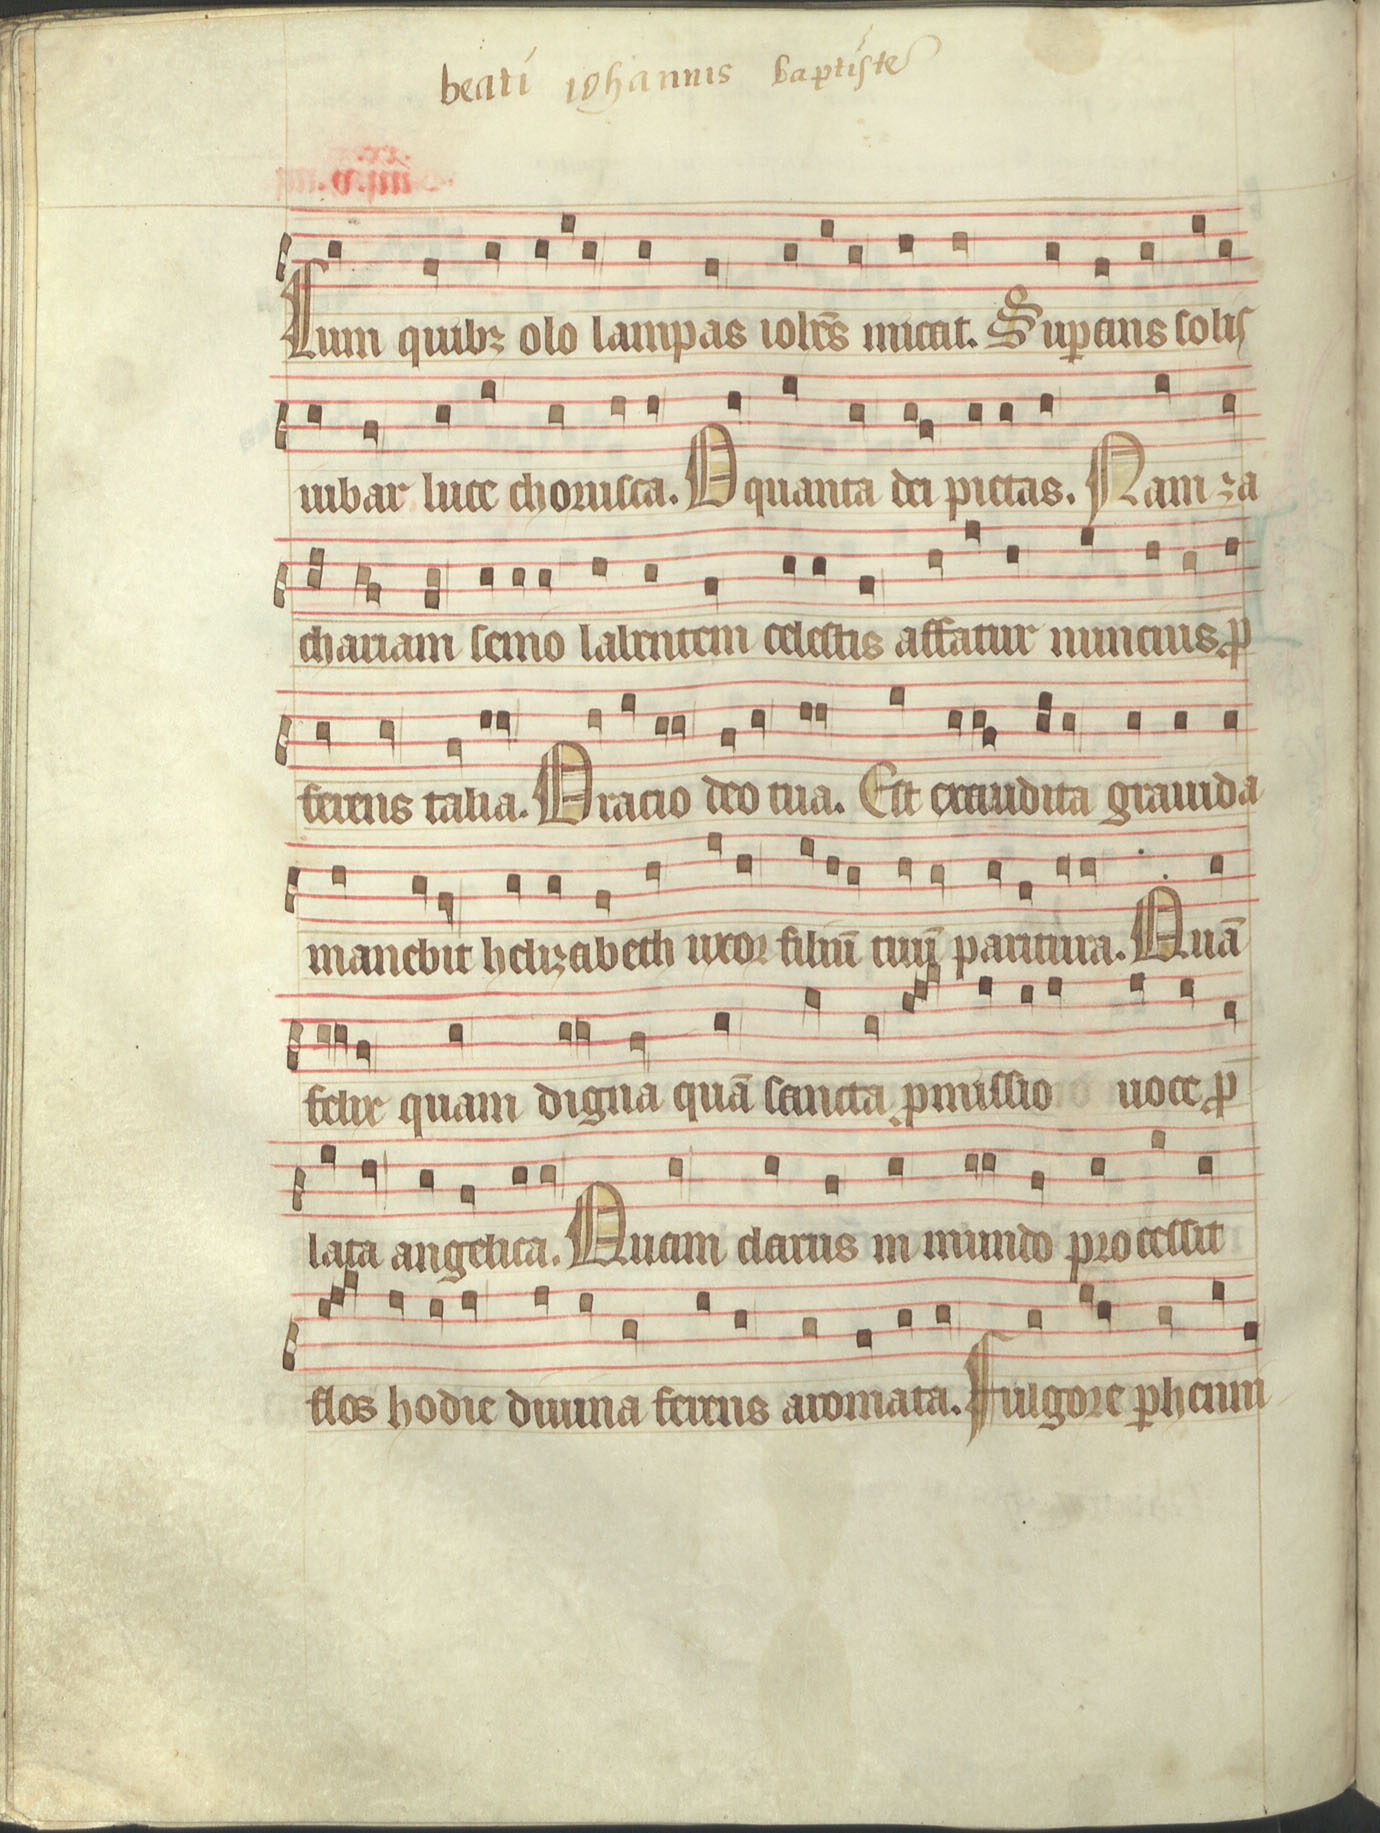 beati iohannis baptiste
Cum quibꝫ olo lampas ioh̄es micat. Suꝑans solis
iubar luce chorusca. O quanta dei pietas. Nam za
chariam semo lalentem celestis affatur nuncius ꝓ
ferens talia. Oracio deo tua. Est exaudita grauida
manebit helizabeth uxor filiū tuū paritura. Quā
felix quam digna quā sancta ꝓmissio uoce ꝓ
lata angelica. Quam clarus in mundo processit
flos hodie diuina ferens aromata. Fulgore ꝑhenni